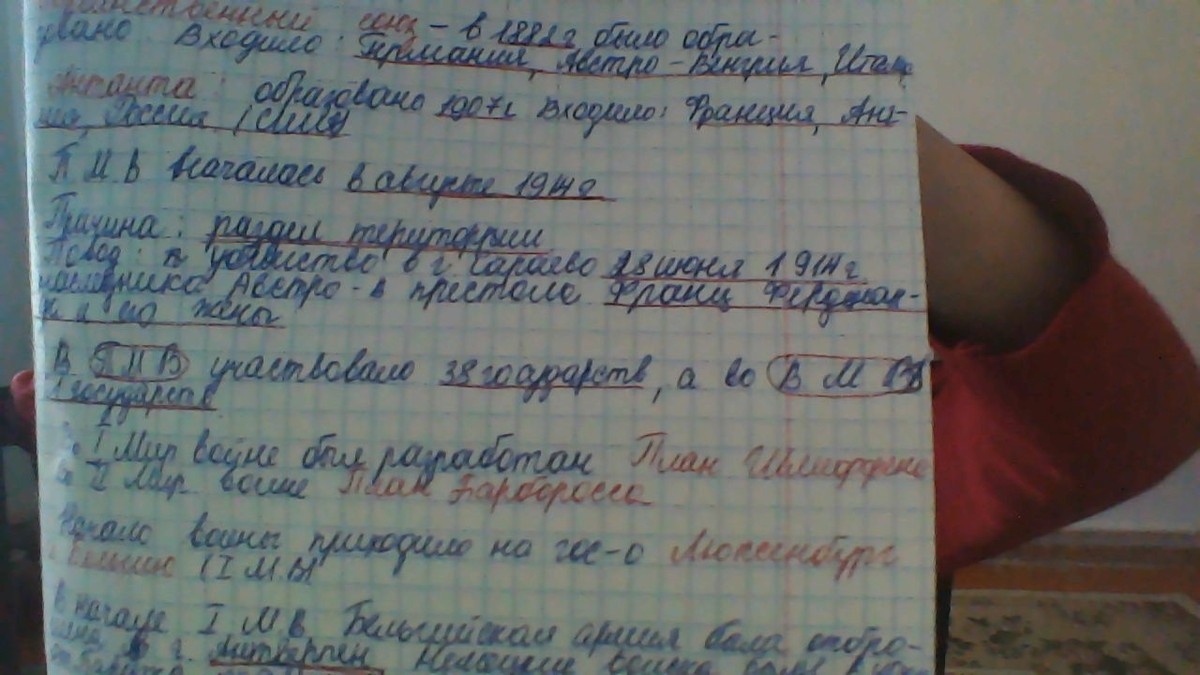 союз - в 1882г было обра-
зовано Входило: Германия, Австро-Венгрия, Итал
Антанта: образовано 1907г Входило: Франция, Анг-
лия, Россия (США)
П М В вначалась в августе 1914г
Причина: раздел територрии
Повод: убийство в г. Сараево 28 июня 1914г.
наследника Австро-в престола Франц Фердинан-
и его жены
В ПМВ участвовало 38 государств, а во В М В
государств
I Мир войне был разработан План Шлиффена
II Мир войне План Барбаросса
Начало войны приходило на гос-о Люксенбург
(I М.В)
В начале I М В. Бельгийская армия была отбро-
шена в г. Антверпен Немецкие войска были